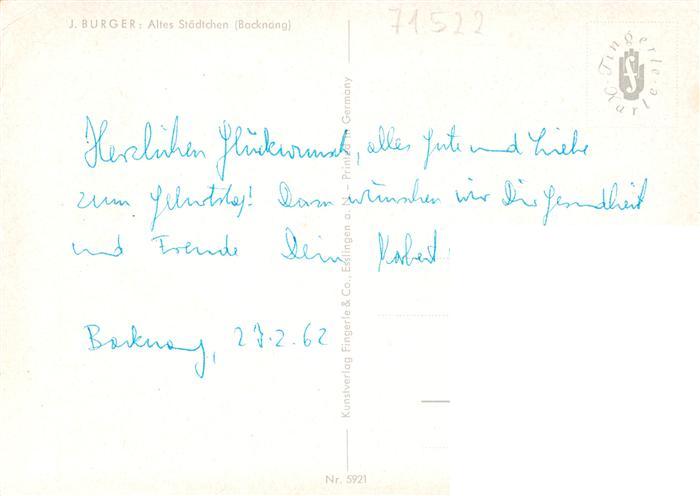 J. BURGER: Altes Städtchen (Backnang)
71522
Fingerle · Karle
Herzlichen Glückwunsch, alles Gute und Liebe
zum Geburtstag! Dazu wünschen wir Dir Gesundheit
und Freude Dein Norbert
Backnang, 27.2.62
Kunstverlag Fingerle & Co., Esslingen a. N. – Printed in Germany
Nr. 5921